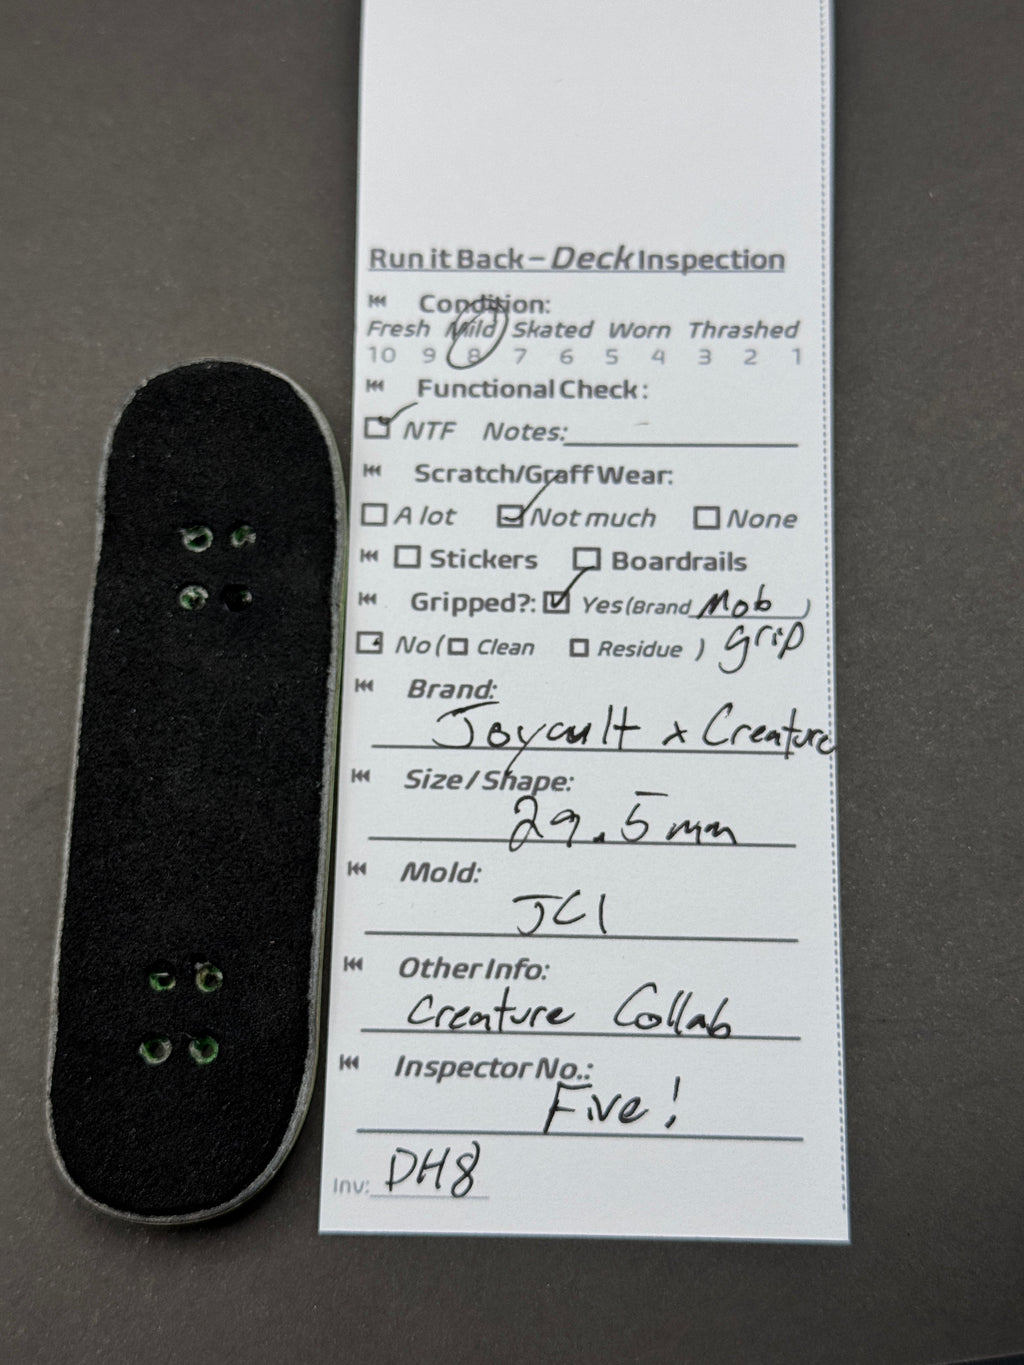 Run it Back – Deck Inspection
Condition:
Fresh Mild Skated Worn Thrashed
10 9 8 7 6 5 4 3 2 1
Functional Check:
NTF Notes: -
Scratch/Graff Wear:
A lot Not much None
Stickers Boardrails
Gripped?: Yes (Brand Mob )
No ( Clean Residue ) grip
Brand:
Joycult x Creature
Size / Shape:
29.5mm
Mold:
JC1
Other Info:
Creature Collab
Inspector No.:
Five!
Inv: DH8